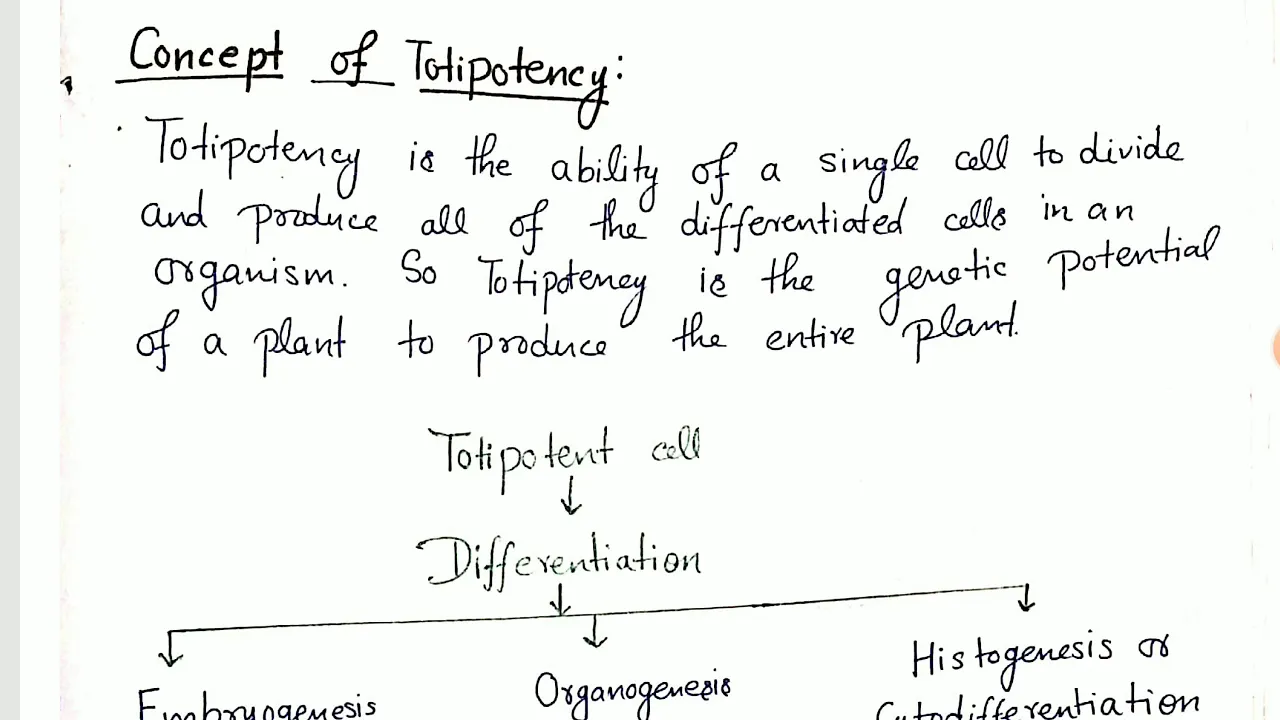 Concept of Totipotency:
Totipotency is the ability of a single cell to divide
and produce all of the differentiated cells in an
organism. So Totipotency is the genetic potential
of a plant to produce the entire plant.
Totipotent cell
Differentiation
Embryogenesis Organogenesis Histogenesis or
Cytodifferentiation